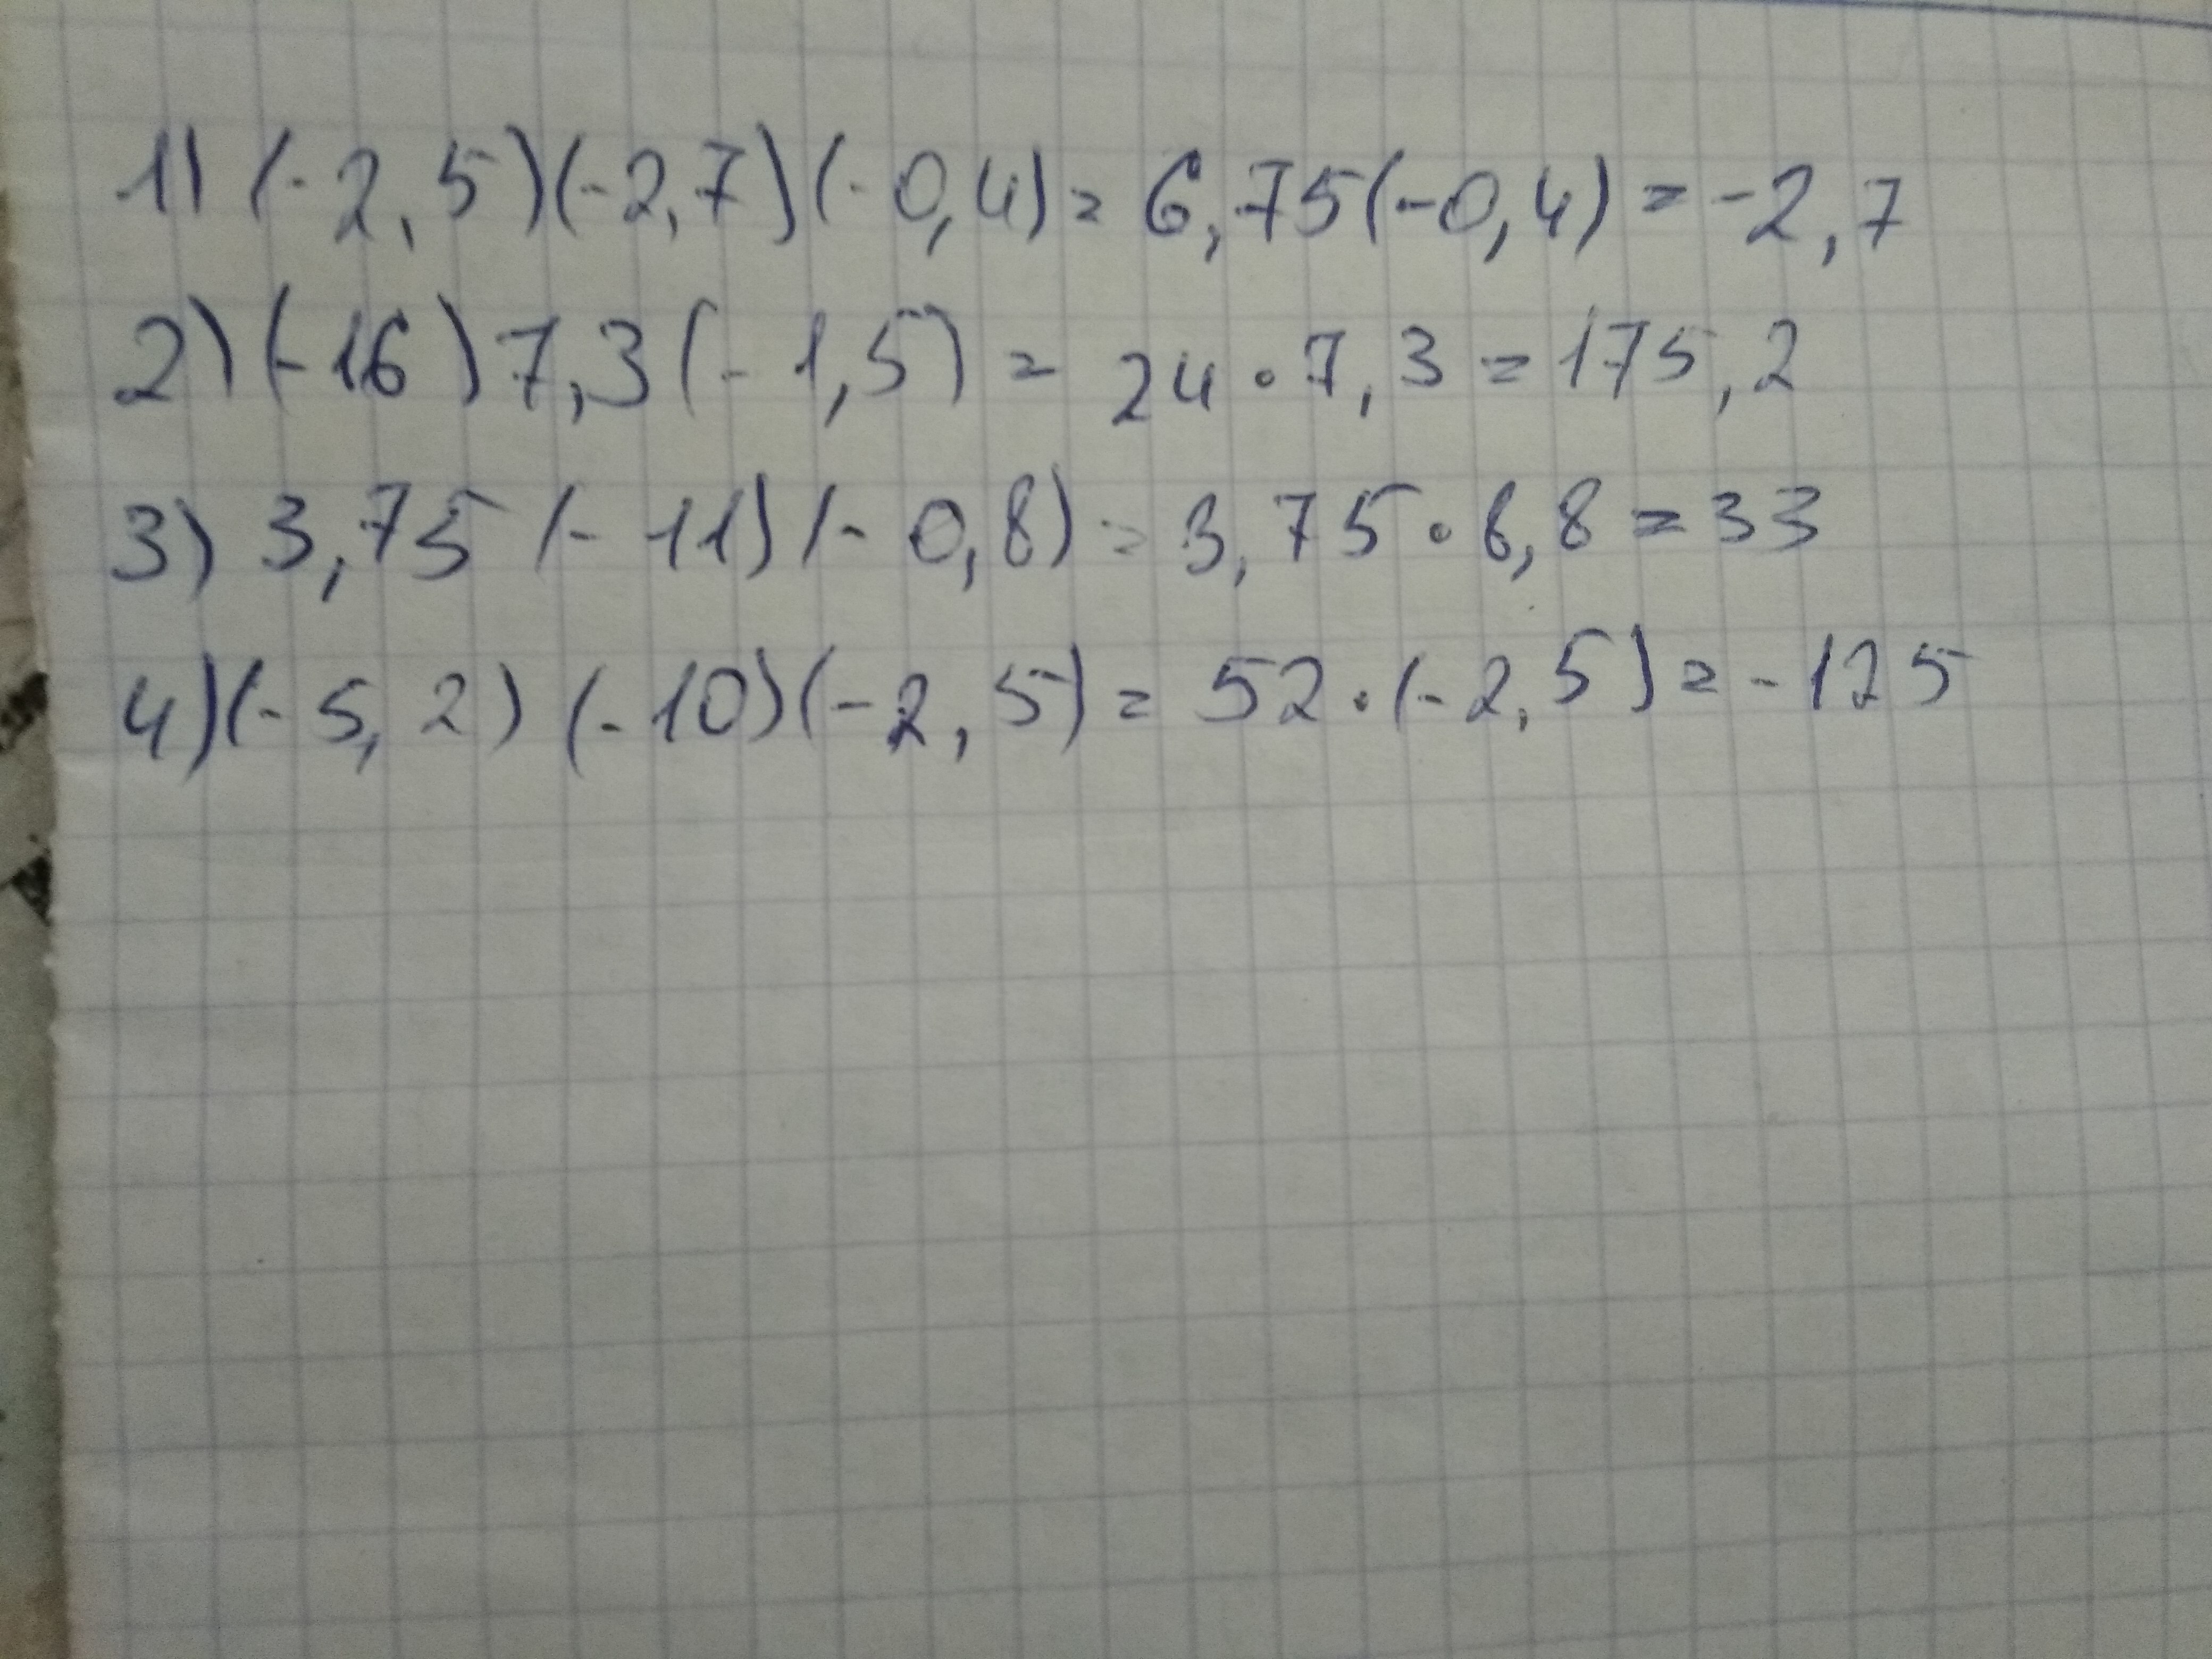 1) (-2,5)(-2,7)(-0,4)= 6,75(-0,4) = -2,7
2) (-16) 7,3 (-1,5) = 24 · 7,3 = 175,2
3) 3,75 (-11) (-0,8) = 3,75 · 8,8 = 33
4) (-5,2) (-10)(-2,5) = 52 · (-2,5) = -125